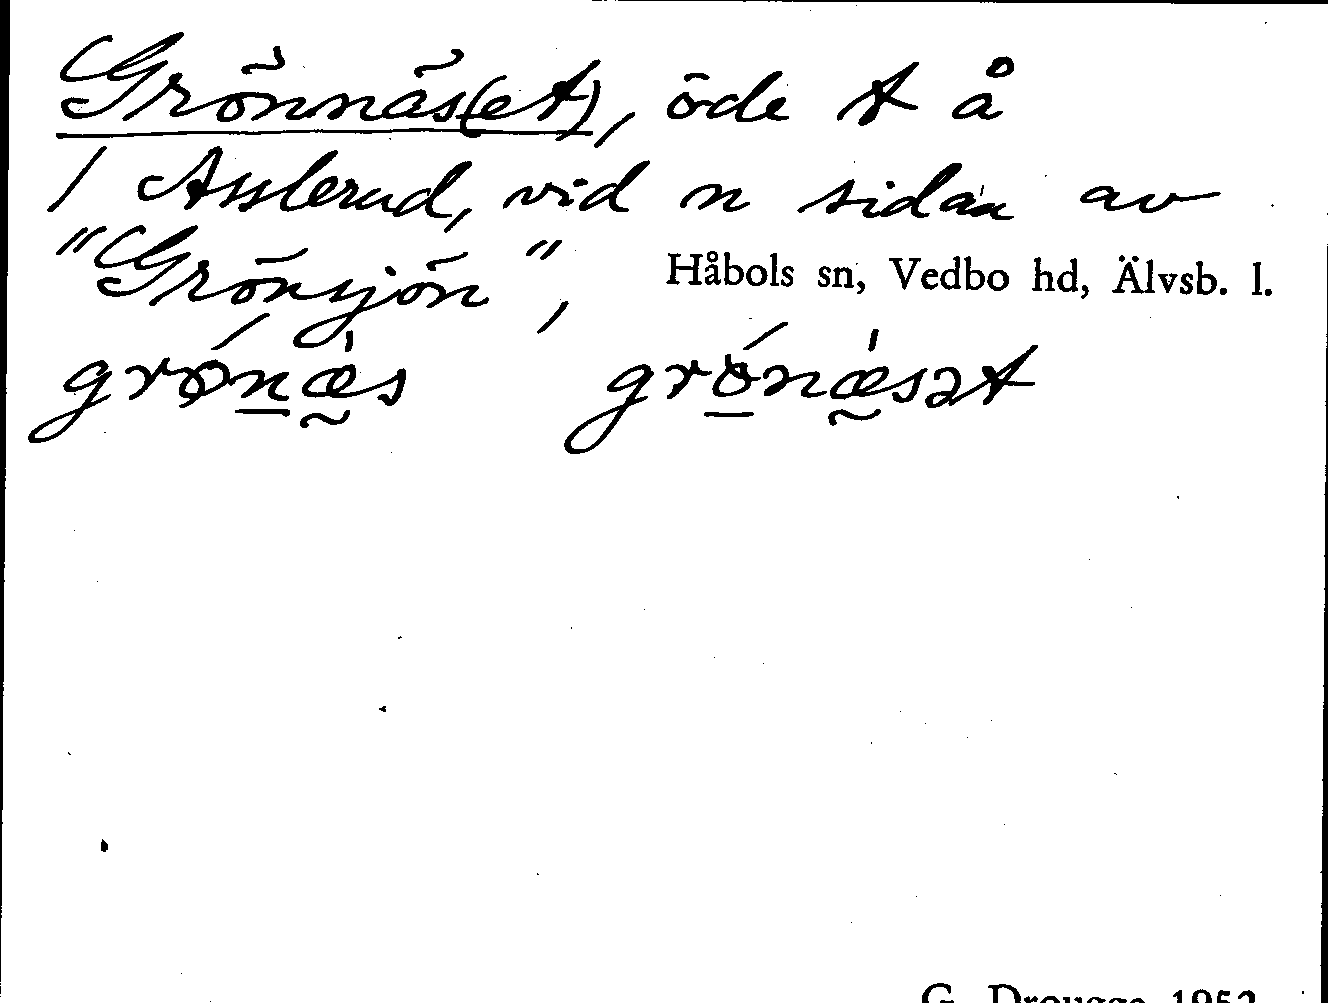 Grönnäs(et), öde t å
1 Asslerud, vid n sidan av
"Grönsjön",
Håbols sn, Vedbo hd, Älvsb. l.
grǿn̲æ̰̀s grǿ̲næ̰̀sət
G. Drougge 1952